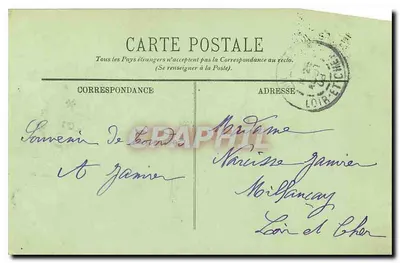 CARTE POSTALE
Tous les Pays étrangers n'acceptent pas la Correspondance au recto.
(Se renseigner à la Poste).
CORRESPONDANCE
ADRESSE
LOIR-ET-CHER
Souvenir de
A Janvier
Madame
Narcisse Janvier
Millançay
Loir et Cher
CPAPHIL